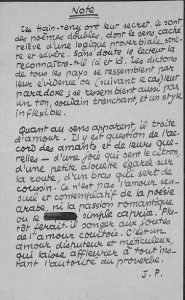 Note
Les Hain-Tenys ont leur secret. Ce sont
des poèmes doubles, dont le sens caché
relève d'une logique proverbiale, stric-
te et sévère. Sans doute le lecteur la
reconnaîtra-t-il ici et là. Les dictons
de tous les pays se ressemblent par
leur évidence ou (suivant le cas) leur
paradoxe; se ressemblent aussi par
un ton, soudain trenchant, et un style
inflexible.
Quant au sens apparent, il traite
d'amour. Il y est question de l'ac-
cord des amants et de leurs que-
relles — d'une joie qui sent le citron,
d'une petite alouette égarée sur
la route, d'un bras qui sert de
coussin. Ce n'est pas l'amour sen-
suel et contemplatif de la poésie
arabe, ni la passion romantique
ou le simple caprice. Plu-
tôt ferait-il songer aux joutes
de l'amour courtois. C'est un
amour disputeur et méticuleux,
qui laisse affleurer à tout ins-
tant l'autorité du proverbe.
J. P.